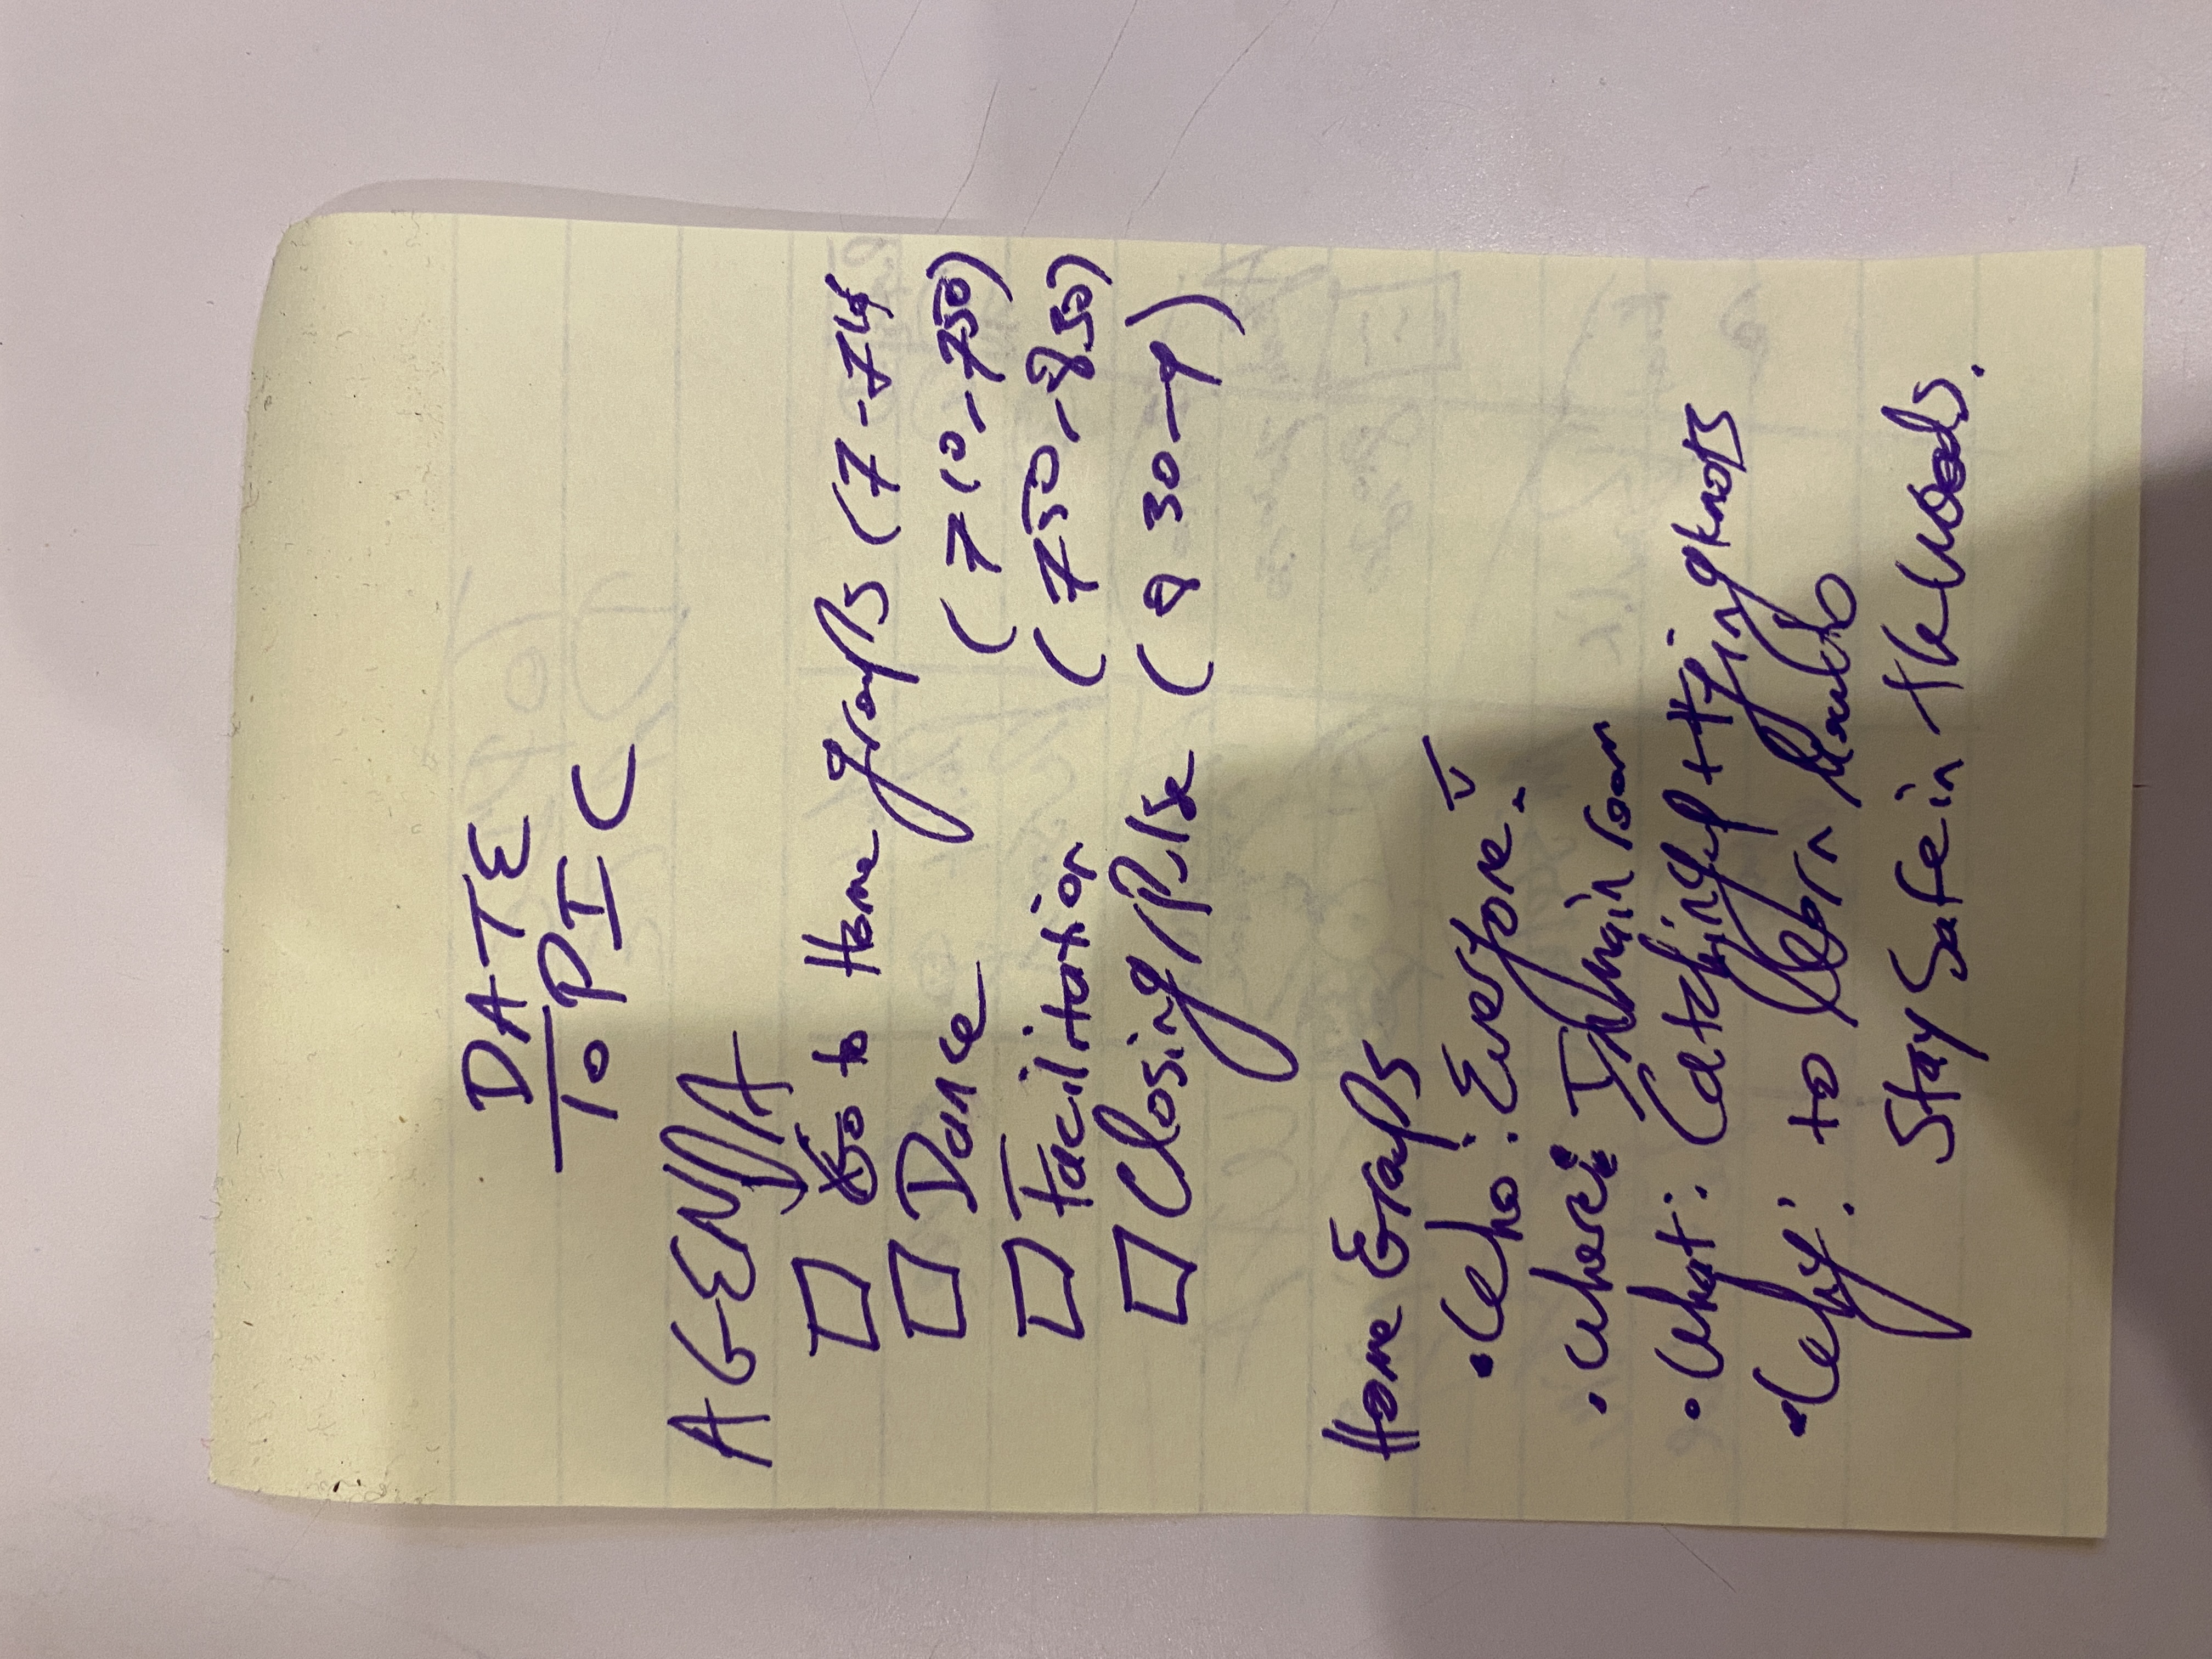 DATE
TOPIC
AGENDA
☐ Go to Home groups (7-710
☐ Dance (710-750)
☐ Facilitation (750-830)
☐ Closing/Pulse (830-9)
Home Groups
• Who: Everyone.
• Where: In main room
• What: Catching up + tying knots
• Why: to learn how to
Stay Safe in the woods.